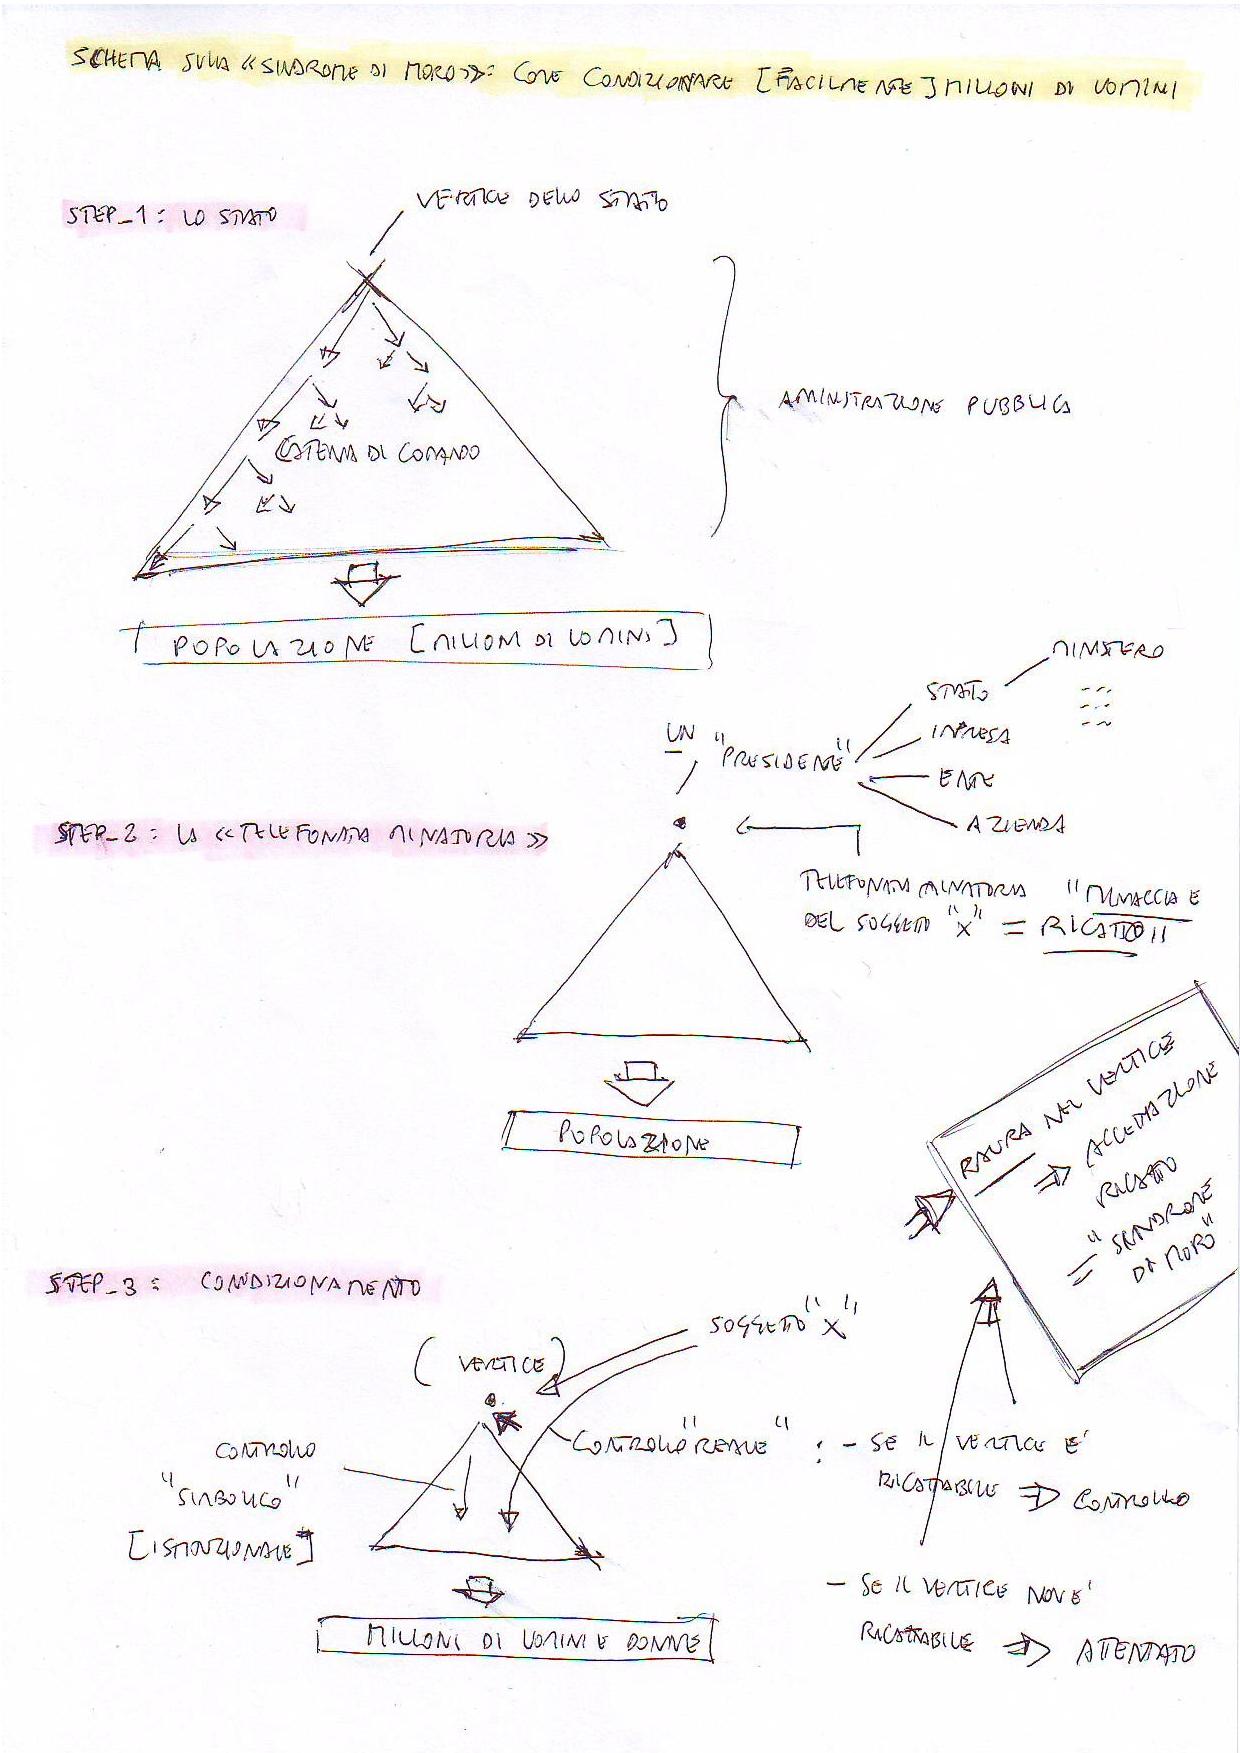 SCHEMA SULLA «SINDROME DI MORO»: COME CONDIZIONARE [FACILMENTE] MILIONI DI UOMINI
STEP_1: LO STATO
VERTICE DELLO STATO
CATENA DI COMANDO
AMINISTRAZIONE PUBBLICA
POPOLAZIONE [MILIONI DI UOMINI]
MINISTERO
STATO
UN "PRESIDENTE"
IMPRESA
ENTE
AZIENDA
STEP_2: LA «TELEFONATA MINATORIA»
TELEFONATA MINATORIA "MINACCIA E
DEL SOGGETTO "X" = RICATTO"
POPOLAZIONE
PAURA NEL VERTICE
⇒ ACCETTAZIONE
RICATTO
= "SINDROME
DI MORO"
STEP_3: CONDIZIONAMENTO
SOGGETTO "X"
(VERTICE)
CONTROLLO
"SIMBOLICO"
[ISTITUZIONALE]
CONTROLLO "REALE" : - SE IL VERTICE E'
RICATTABILE ⇒ CONTROLLO
- SE IL VERTICE NON E'
RICATTABILE ⇒ ATTENTATO
MILIONI DI UOMINI E DONNE